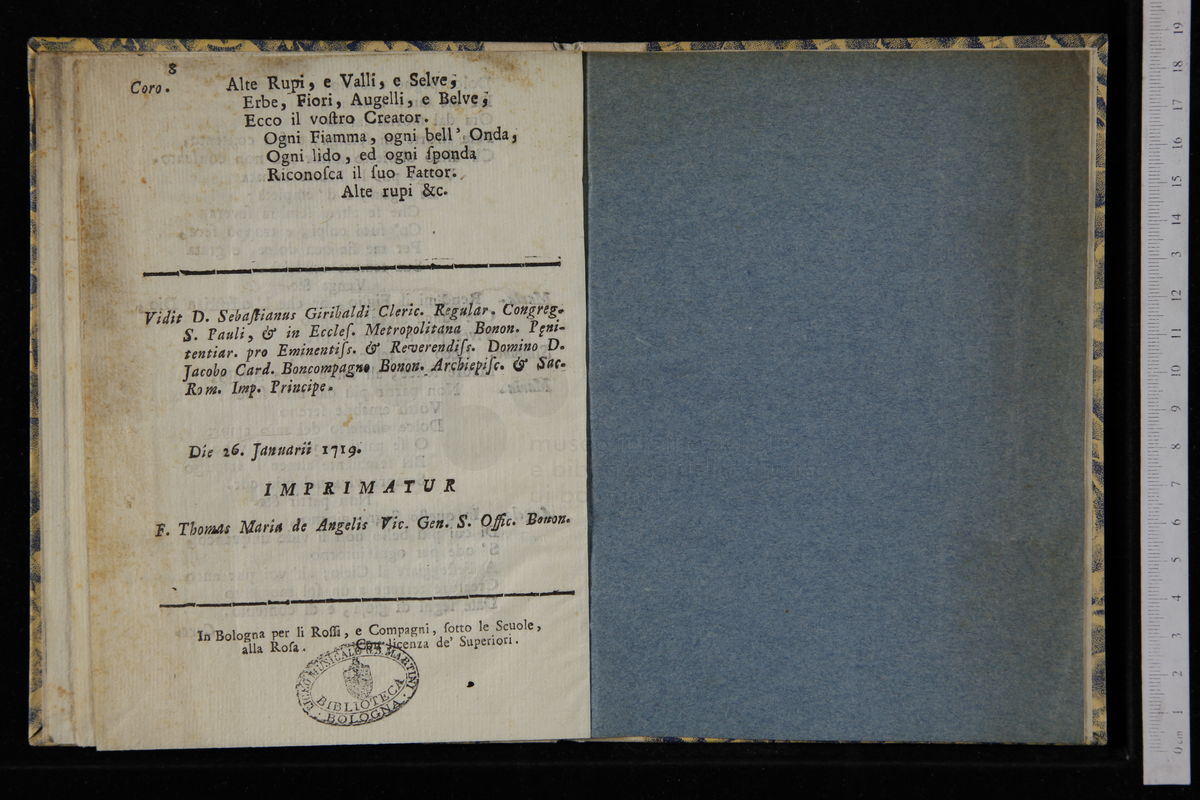 8
Coro. Alte Rupi, e Valli, e Selve;
Erbe, Fiori, Augelli, e Belve;
Ecco il voſtro Creator.
Ogni Fiamma, ogni bell' Onda,
Ogni lido, ed ogni ſponda
Riconoſca il ſuo Fattor.
Alte rupi &c.
Vidit D. Sebaſtianus Giribaldi Cleric. Regular. Congreg.
S. Pauli, & in Eccleſ. Metropolitana Bonon. Pęni-
tentiar. pro Eminentiſs. & Reverendiſs. Domino D.
Jacobo Card. Boncompagno Bonon. Archiepiſc. & Sac.
Rom. Imp. Principe.
Die 26. Januarii 1719.
IMPRIMATUR
F. Thomas Maria de Angelis Vic. Gen. S. Offic. Bonon.
In Bologna per li Roſſi, e Compagni, ſotto le Scuole,
alla Roſa. Con licenza de' Superiori.
LICEO MUSICALE G.B. MARTINI
BIBLIOTECA
BOLOGNA
0 cm 1 2 3 4 5 6 7 8 9 10 11 12 13 14 15 16 17 18 19